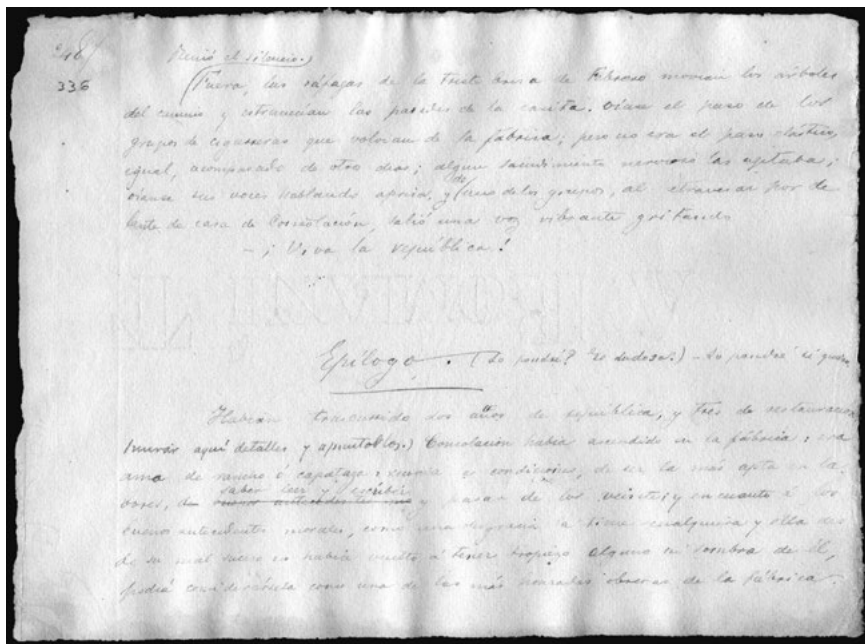 248/
336
Reinó el silencio.)
(Fuera, las ráfagas de la triste brisa de Febrero movían los árboles
del camino y estremecían las paredes de la casita. Oíase el paso de los
grupos de cigarreras que volvían de la fábrica; pero no era el paso elástico,
igual, acompasado de otros días; algun sacudimiento nervioso las agitaba;
oíanse sus voces hablando aprisa, y de uno de los grupos, al atravesar por de
lante de casa de Consolación, salió una voz vibrante gritando
- ¡ Viva la república!
Epílogo. (Lo pondré? Es dudoso.) - Lo pondré si quiero
Habían trascurrido dos años de república, y tres de restauración
(mirar aquí detalles y apuntes.) Consolación había ascendido en la fábrica: era
ama de rancho ó capataza: reunía las condiciones, de ser la más apta en la
bores, de saber leer y escribir y pasar de los veinte; y en cuanto á los
buenos antecedentes morales, como una desgracia la tiene cualquiera y ella des
de su mal suceso no había vuelto á tener tropiezo alguno ni sombra de él,
podía considerársela como una de las más honradas obreras de la fábrica.